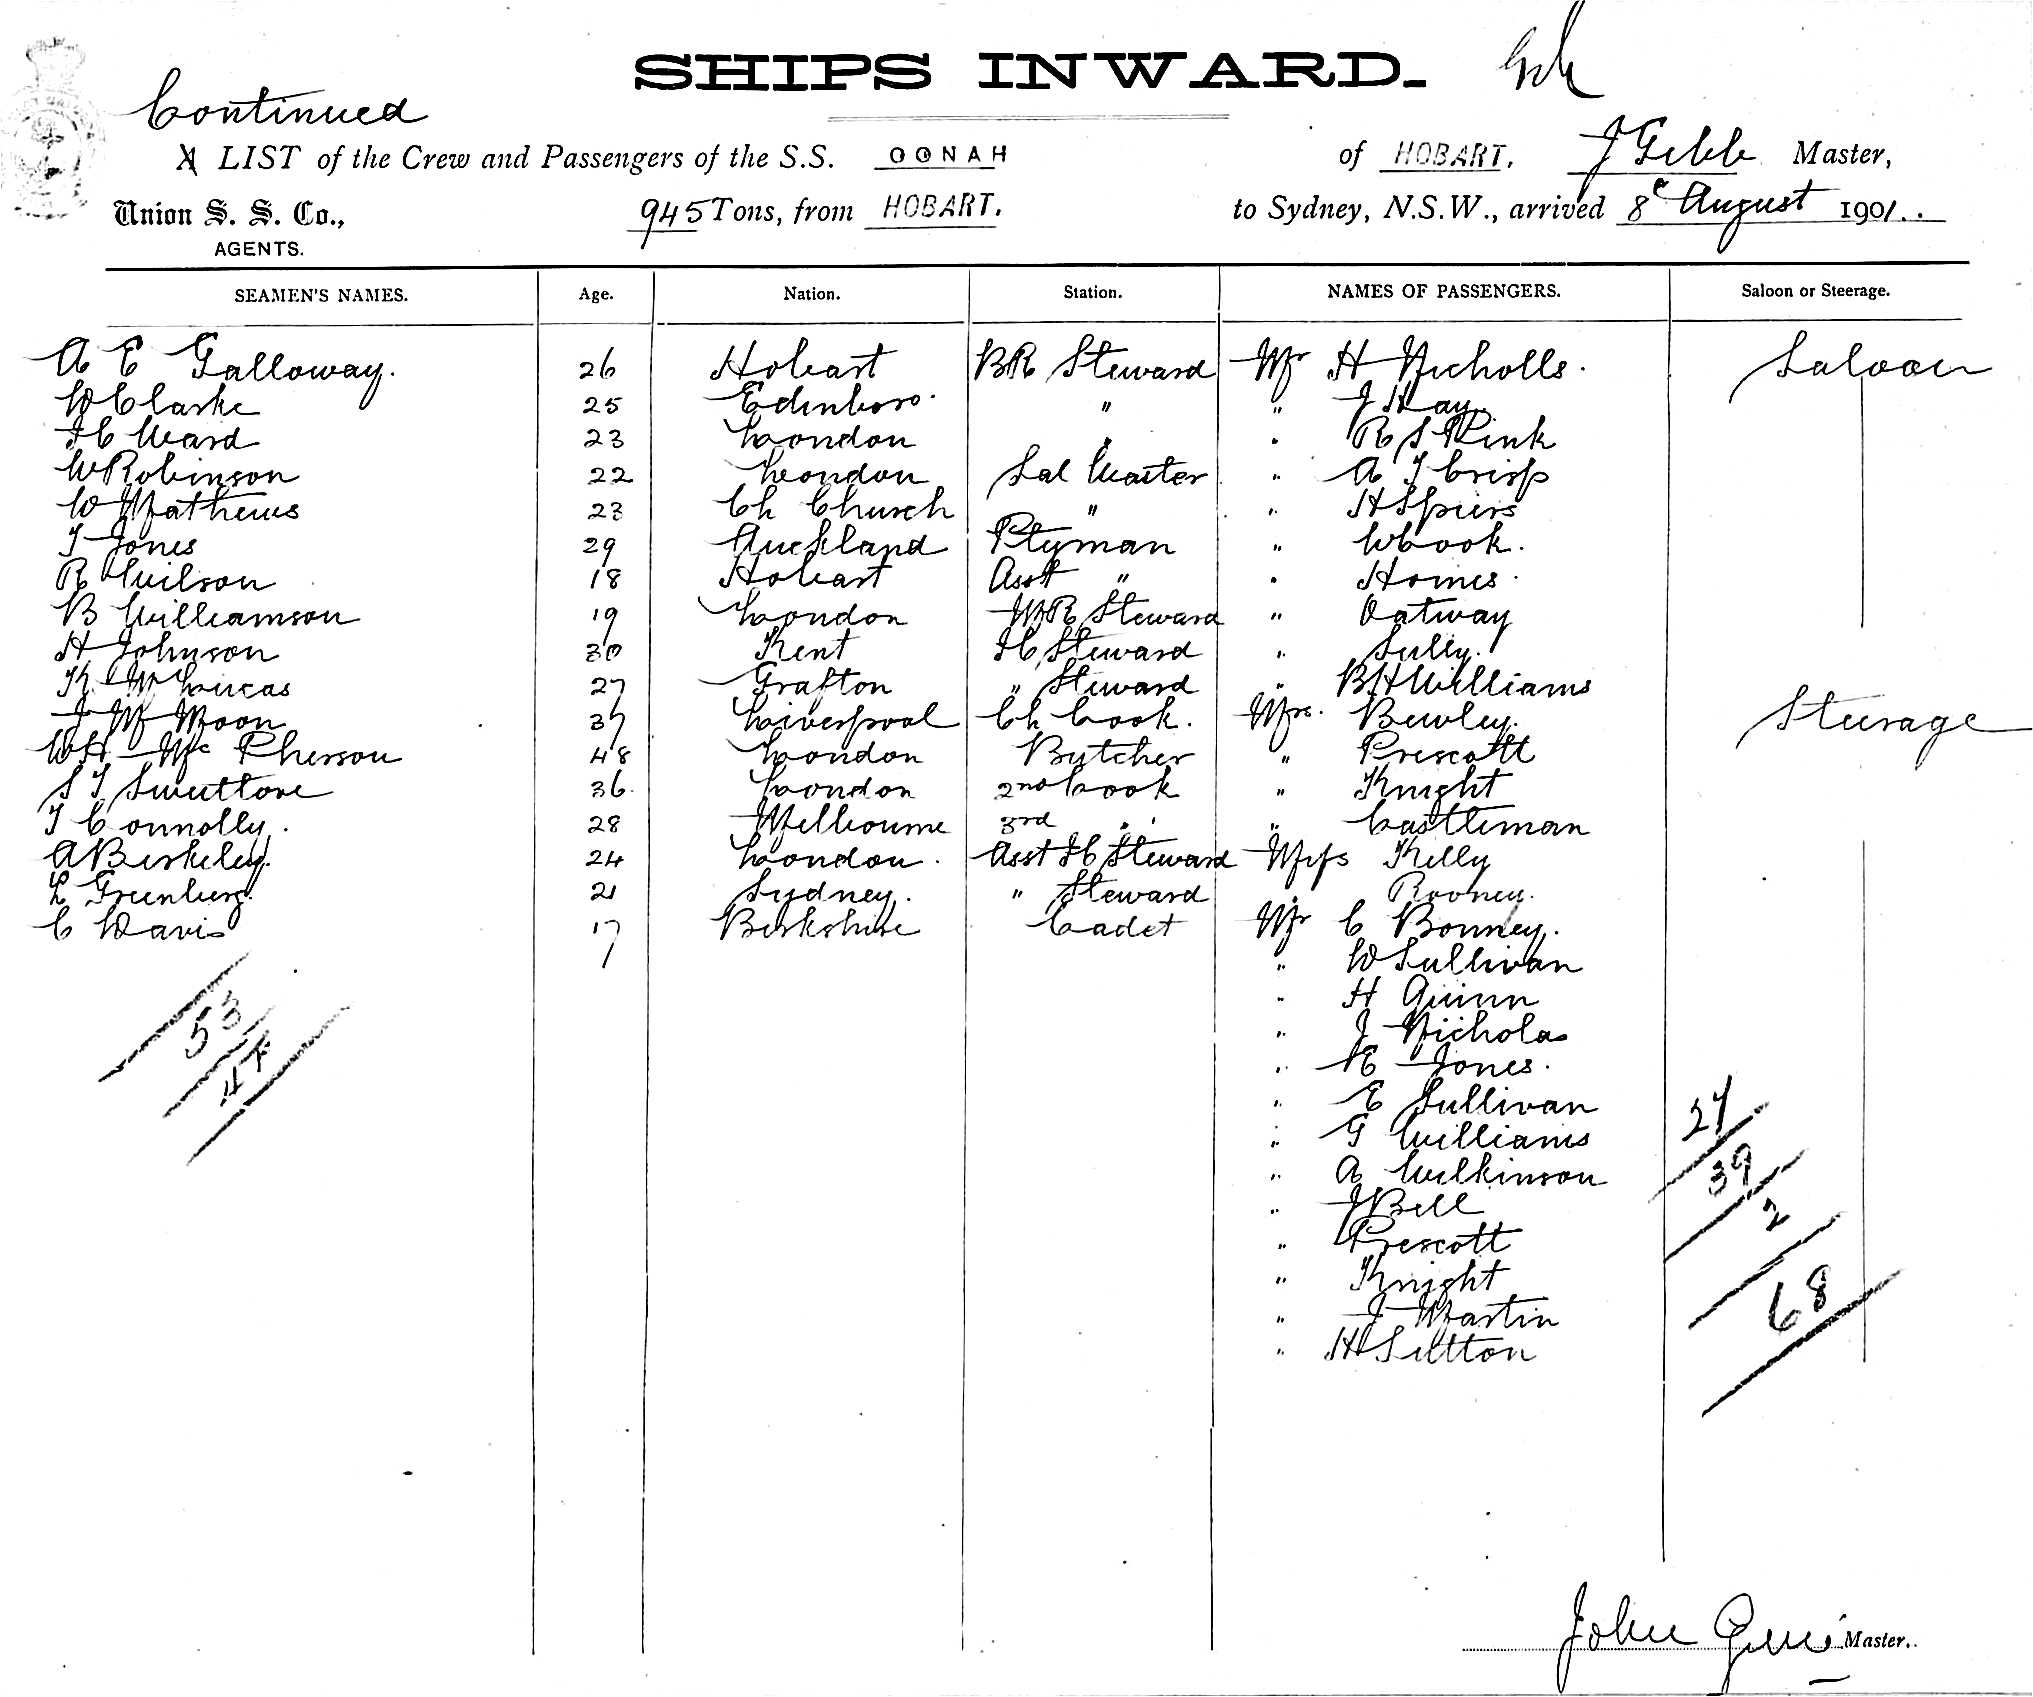 SHIPS INWARD.
Continued
A LIST of the Crew and Passengers of the S.S. OONAH of HOBART. J Gibb Master,
Union S. S. Co., 945 Tons, from HOBART. to Sydney, N.S.W., arrived 8 August 1901
AGENTS.
SEAMEN'S NAMES. Age. Nation. Station. NAMES OF PASSENGERS. Saloon or Steerage.
A E Galloway. 26 Hobart BR Steward Mr H Nicholls. Saloon
W Clarke 25 Edinboro. " " J Hay
H C Ward 23 London " " R S Pink
W Robinson 22 London Sal Waiter " A J Crisp
W Mathews 23 Ch Church " " H Spiers
T Jones 29 Auckland Ptyman " W Cook.
R Wilson 18 Hobart Asst " " Homes.
B Williamson 19 London MR Steward " Oatway
H Johnson 30 Kent FC Steward " Sully.
K M Lucas 27 Grafton " Steward " B H Williams
J M Moon 37 Liverpool Ch Cook. Mrs. Bewley. Steerage
W H McPherson 48 London Butcher " Prescott
S T Sweetlove 36 London 2nd Cook " Knight
T Connolly. 28 Melbourne 3rd " " Castleman
A Berkeley. 24 London. Asst FC Steward Miss Kelly
L Greenberg. 21 Sydney. " Steward " Rooney.
C Davis 17 Berkshire Cadet Mr C Bonney.
" W Sullivan
" H Quinn
53 " J Nicholas
" E Jones.
" E Sullivan 27
" G Williams
" A Wilkinson 39
" J Bell 2
" Prescott
" Knight 68
" J Martin
" H Sutton
John Master.